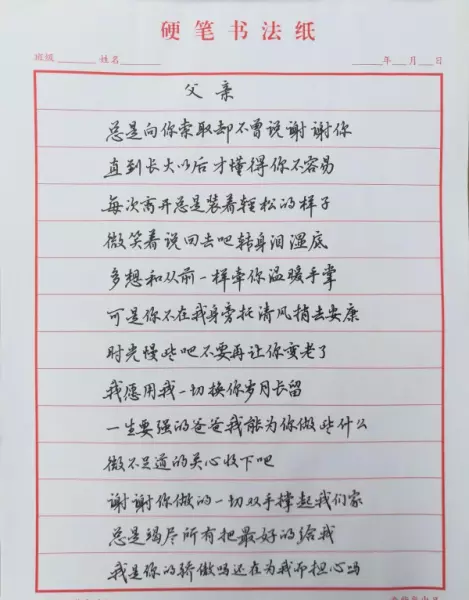 硬笔书法纸
班级 姓名 年 月 日
父亲
总是向你索取却不曾说谢谢你
直到长大以后才懂得你不容易
每次离开总是装着轻松的样子
微笑着说回去吧转身泪湿底
多想和从前一样牵你温暖手掌
可是你不在我身旁托清风捎去安康
时光慢些吧不要再让你变老了
我愿用我一切换你岁月长留
一生要强的爸爸我能为你做些什么
微不足道的关心收下吧
谢谢你做的一切双手撑起我们家
总是竭尽所有把最好的给我
我是你的骄傲吗还在为我而担心吗